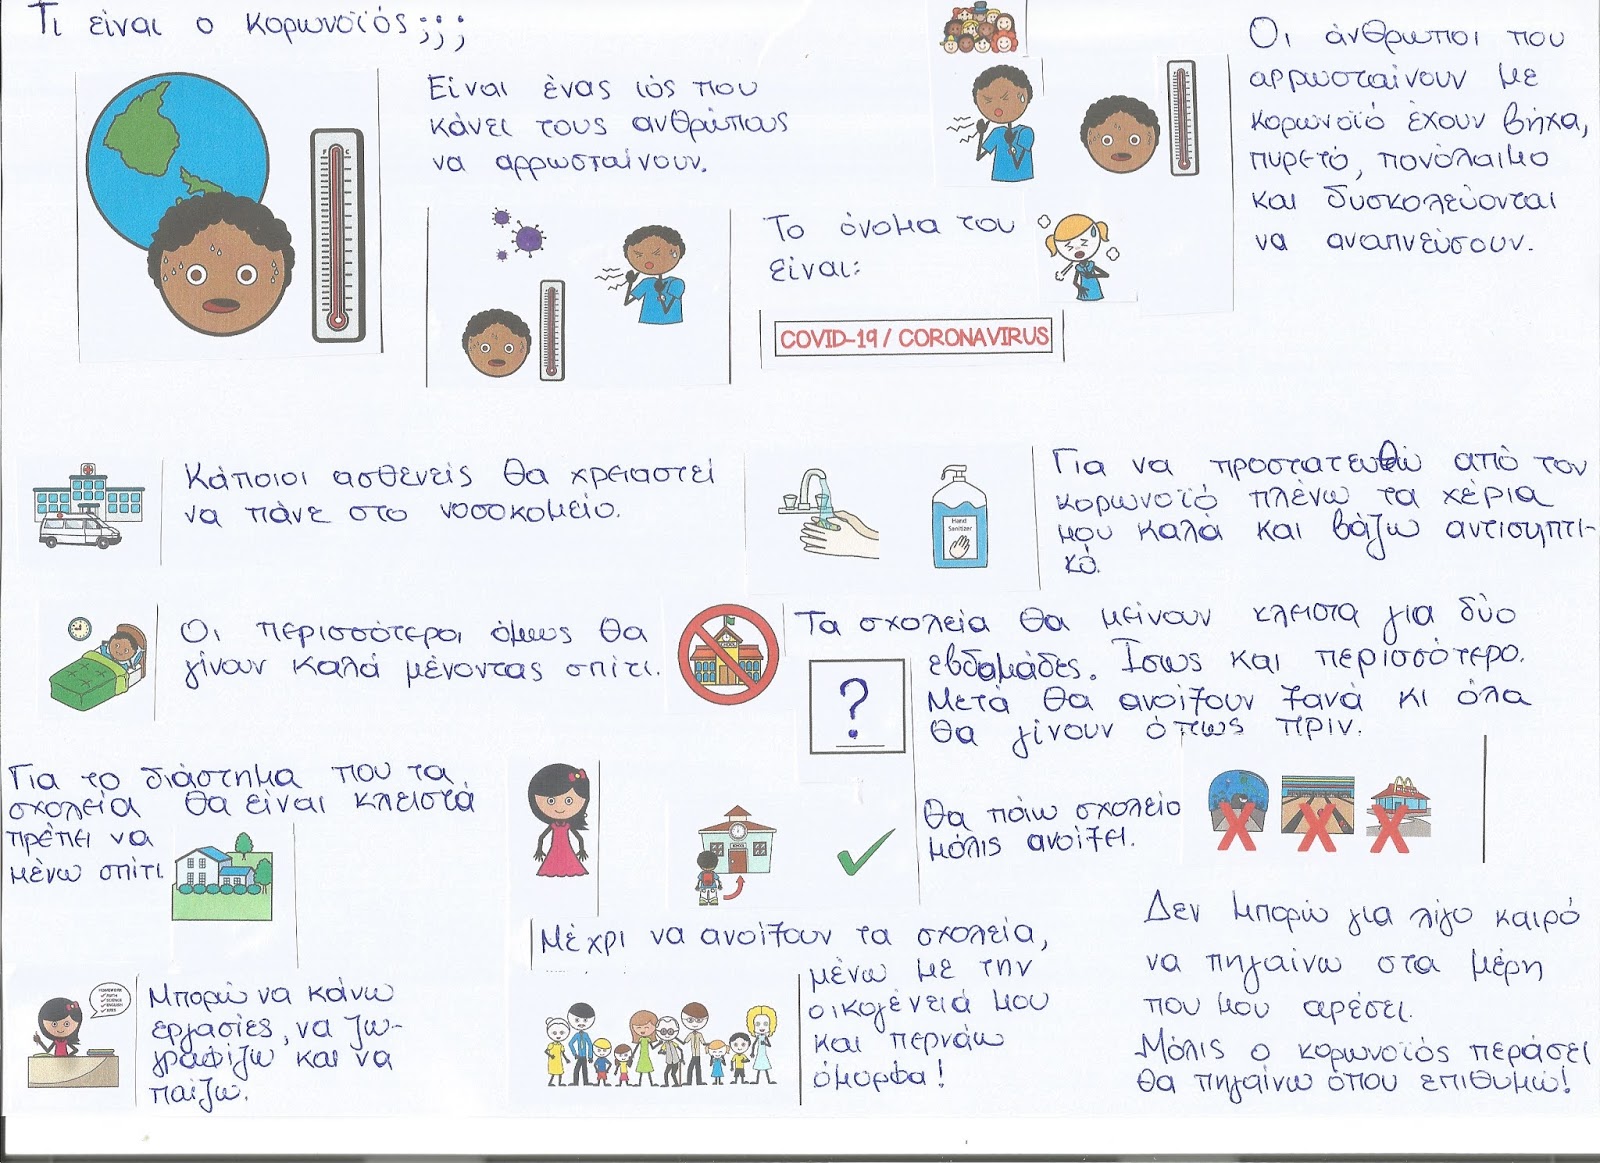 Τι είναι ο κορωνοϊός;;;
Είναι ένας ιός που
κάνει τους ανθρώπους
να αρρωσταίνουν.
Το όνομα του
είναι:
COVID-19 / CORONAVIRUS
Οι άνθρωποι που
αρρωσταίνουν με
κορωνοϊό έχουν βήχα,
πυρετό, πονόλαιμο
και δυσκολεύονται
να αναπνεύσουν.
Κάποιοι ασθενείς θα χρειαστεί
να πάνε στο νοσοκομείο.
Hand
Sanitizer
Για να προστατευθώ από τον
κορωνοϊό πλένω τα χέρια
μου καλά και βάζω αντισηπτι-
κό.
Οι περισσότεροι όμως θα
γίνουν καλά μένοντας σπίτι.
Τα σχολεία θα μείνουν κλειστα για δύο
εβδομάδες. Ισως και περισσότερο.
Μετά θα ανοίξουν ξανά κι όλα
θα γίνουν όπως πριν.
?
Για το διάστημα που τα
σχολεία θα είναι κλειστά
πρέπει να
μένω σπίτι.
Θα πάω σχολείο
μόλις ανοίξει.
Μέχρι να ανοίξουν τα σχολεία,
μένω με την
οικογένειά μου
και περνάω
όμορφα!
Μπορώ να κάνω
εργασίες, να ζω-
γραφίζω και να
παίζω.
Δεν μπορώ για λίγο καιρό
να πηγαίνω στα μέρη
που μου αρέσει.
Μόλις ο κορωνοϊός περάσει
θα πηγαίνω όπου επιθυμώ!